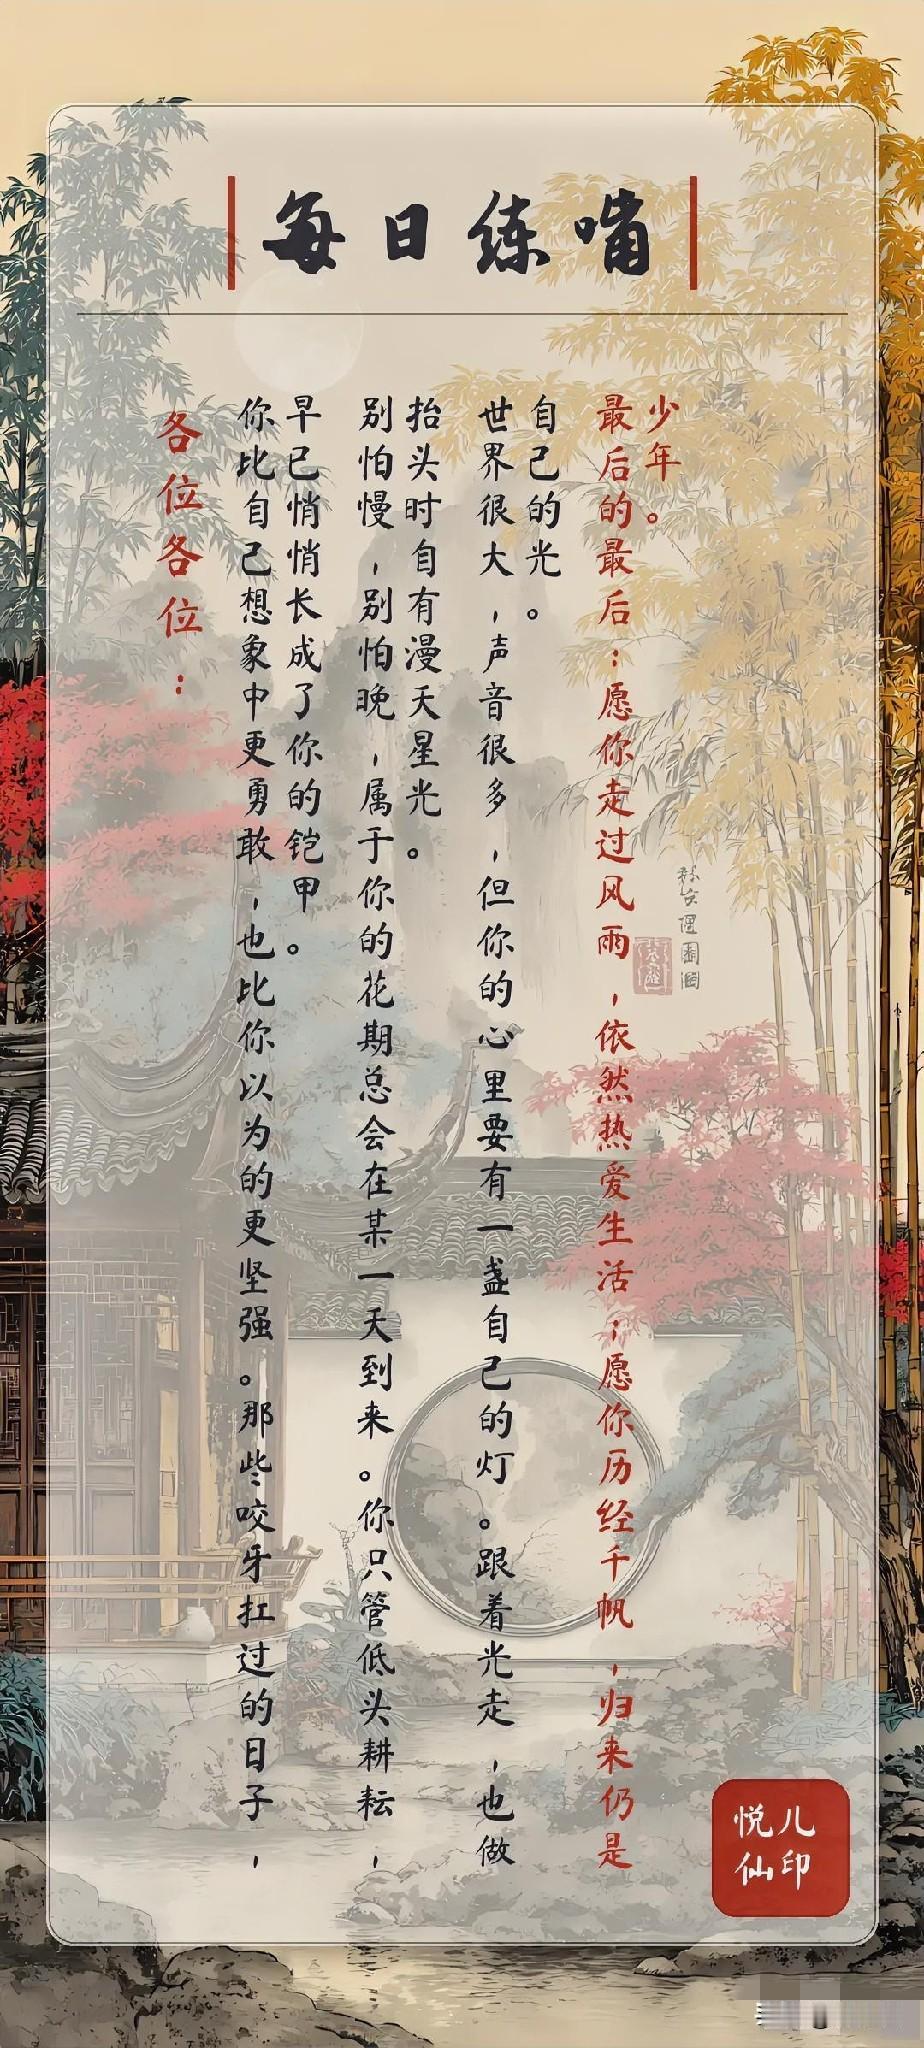 每日练
各位各位：
你比自己想象中更勇敢，也比你以为的更坚强。那些咬牙扛过的日子，
早已悄悄长成了你的铠甲。
别怕慢，别怕晚，属于你的花期总会在某一天到来。你只管低头耕耘，
抬头时自有漫天星光。
世界很大，声音很多，但你的心里要有一盏自己的灯。跟着光走，也做
自己的光。
最后的最后：愿你走过风雨，依然热爱生活；愿你历经千帆，归来仍是
少年。
悦儿
仙印